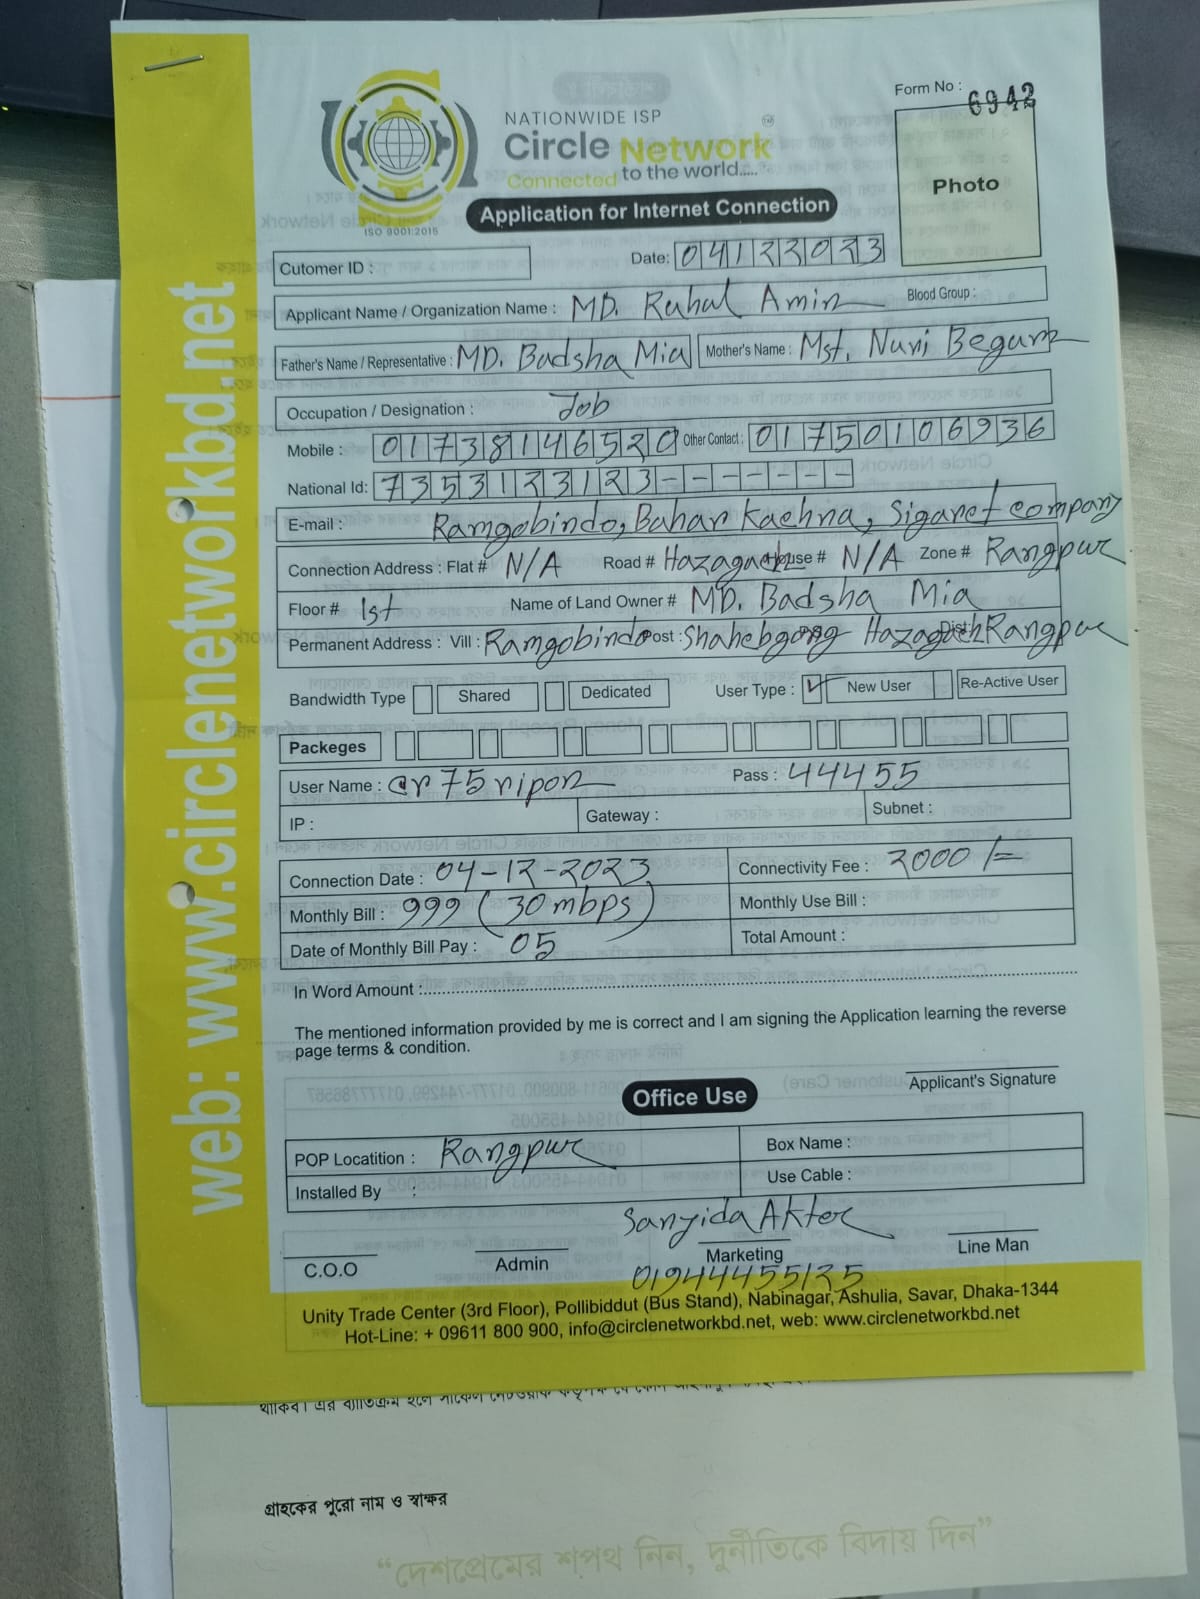 Form No : 6942
NATIONWIDE ISP
Circle Network
Connected to the world.....
ISO 9001:2015
Photo
Application for Internet Connection
web: www.circlenetworkbd.net
Cutomer ID :
Date: 04122023
Applicant Name / Organization Name : MD. Ruhul Amin Blood Group :
Father's Name / Representative : MD. Badsha Mia Mother's Name : Mst. Nuri Begum
Occupation / Designation : Job
Mobile : 01738146520 Other Contact : 01750106936
National Id: 7353123123-------
E-mail : Ramgobindo, Bahar Kachna, Sigaret company
Connection Address : Flat # N/A Road # Hazagach House # N/A Zone # Rangpur
Floor # 1st Name of Land Owner # MD. Badsha Mia
Permanent Address : Vill : Ramgobindo Post : Shahebgong Hazagach Dist: Rangpur
Bandwidth Type Shared Dedicated User Type : ✓ New User Re-Active User
Packeges
User Name : cr75ripon Pass : 44455
IP : Gateway : Subnet :
Connection Date : 04-12-2023 Connectivity Fee : 2000/=
Monthly Bill : 999 (30mbps) Monthly Use Bill :
Date of Monthly Bill Pay : 05 Total Amount :
In Word Amount :
The mentioned information provided by me is correct and I am signing the Application learning the reverse
page terms & condition.
Applicant's Signature
Office Use
POP Locatition : Rangpur Box Name :
Installed By : Use Cable :
Sanjida Akter
C.O.O Admin Marketing Line Man
01944455125
Unity Trade Center (3rd Floor), Pollibiddut (Bus Stand), Nabinagar, Ashulia, Savar, Dhaka-1344
Hot-Line: + 09611 800 900, info@circlenetworkbd.net, web: www.circlenetworkbd.net
থাকিব। এর ব্যতিক্রম হলে
গ্রাহকের পুরো নাম ও স্বাক্ষর
“দেশপ্রেমের শপথ নিন, দুর্নীতিকে বিদায় দিন”